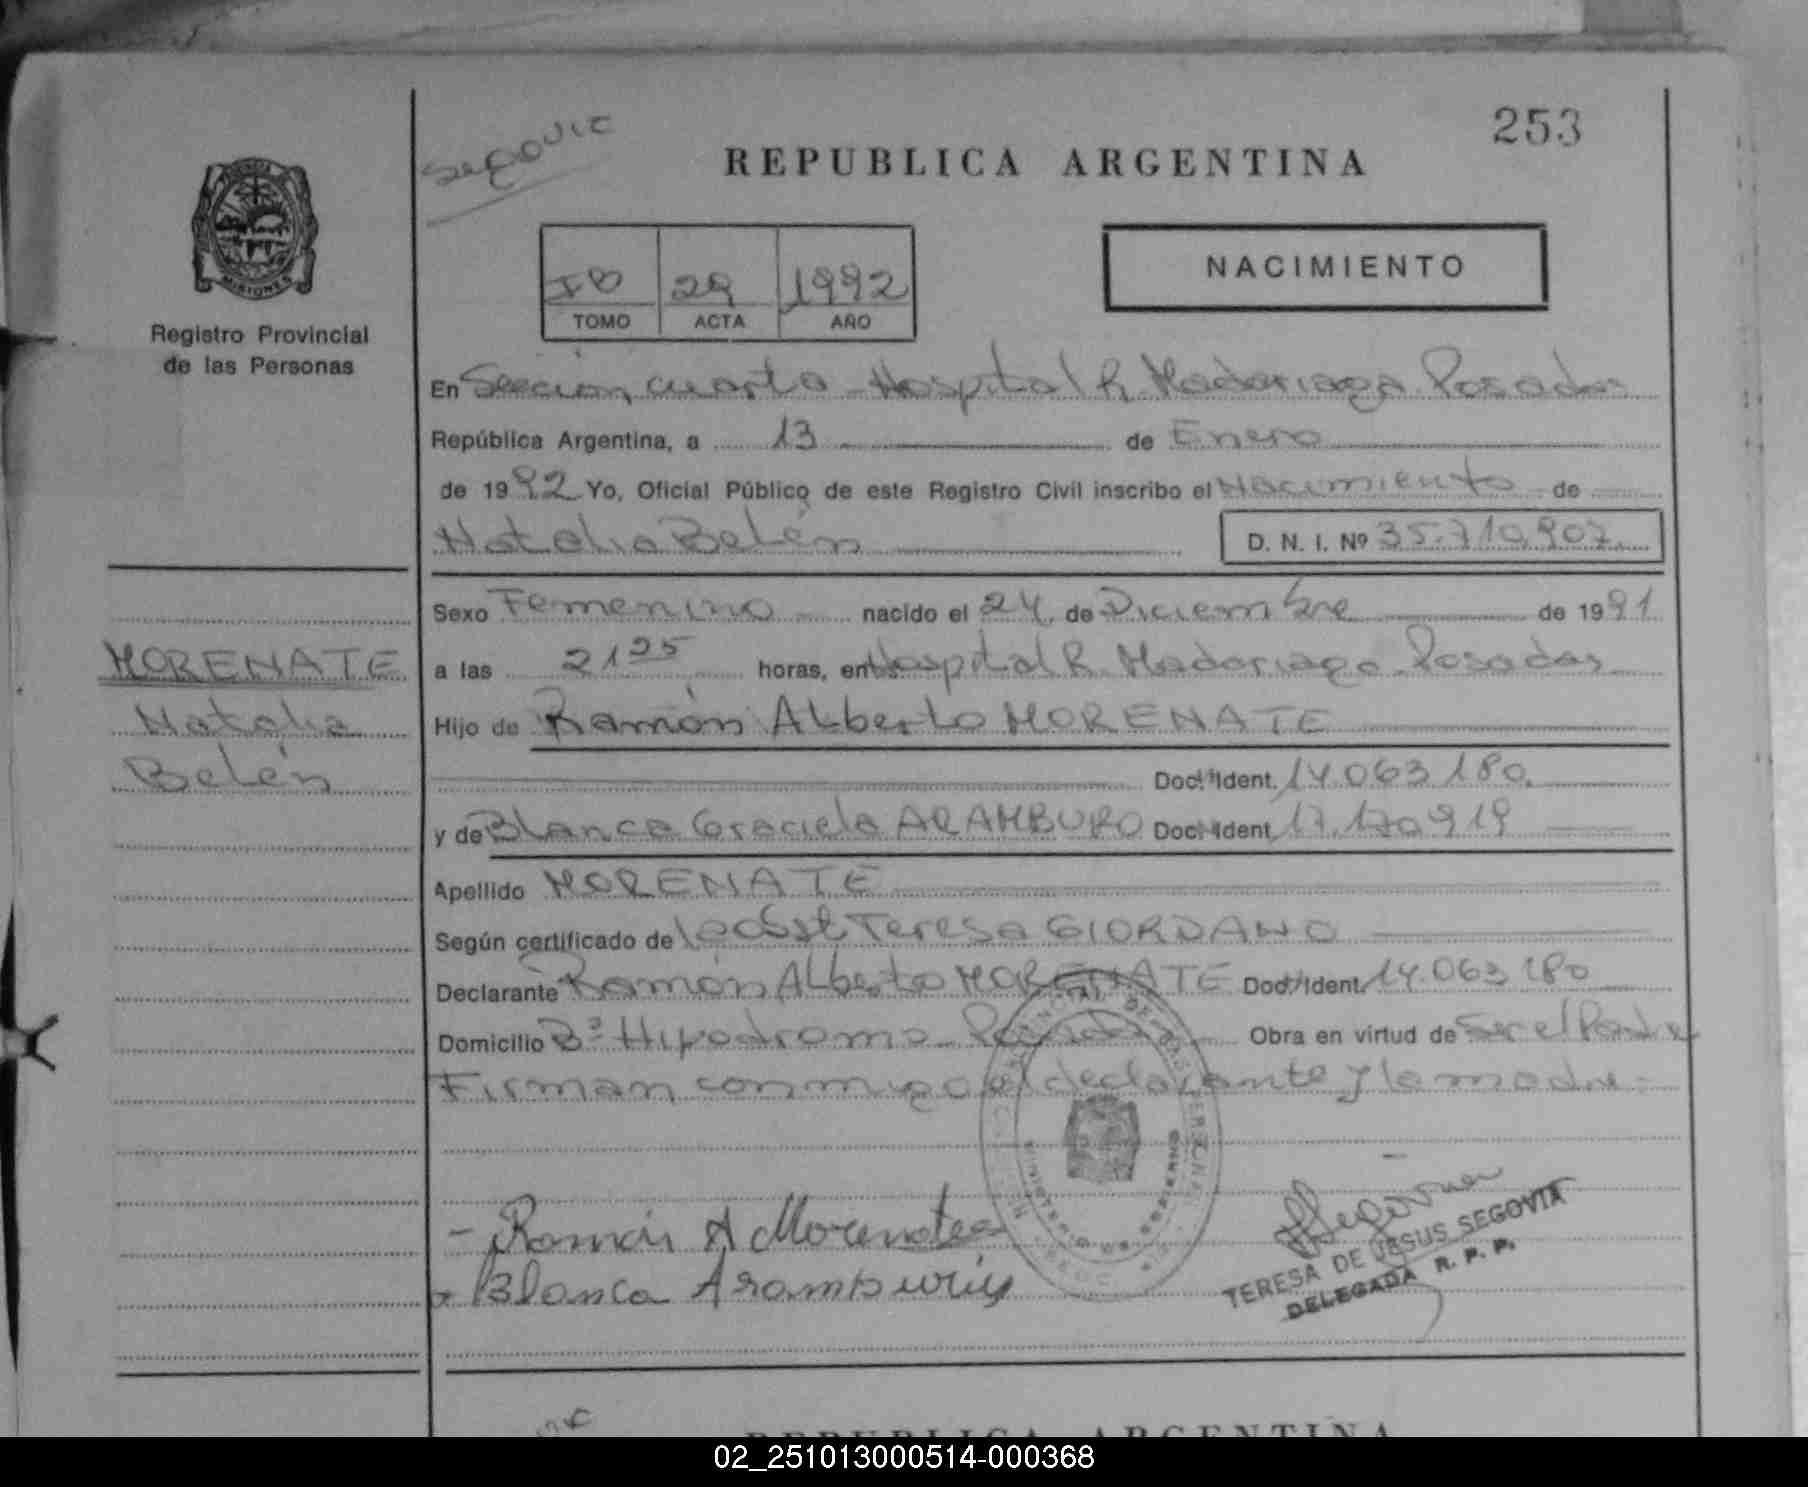 253
Segovia
REPUBLICA ARGENTINA
NACIMIENTO
IB 29 1992
TOMO ACTA AÑO
MISIONES
Registro Provincial
de las Personas
En Sección cuarta - Hospital R. Madariaga Posadas
República Argentina, a 13 de Enero
de 1992 Yo, Oficial Público de este Registro Civil inscribo el Nacimiento de
Natalia Belén D. N. I. Nº 35.710.907
Sexo Femenino nacido el 24 de Diciembre de 1991
a las 21 25 horas, en Hospital R. Madariaga Posadas
Hijo de Ramón Alberto MORENATE
Doc. Ident. 14.063.180.
y de Blanca Graciela ARAMBURO Doc. Ident. 17.170.919
Apellido MORENATE
Según certificado de la Obst Teresa GIORDANO
Declarante Ramón Alberto MORENATE Doc. Ident. 14.063.180
Domicilio Bº Hipodromo Posadas Obra en virtud de Ser el Padre
Firman conmigo el declarante y la madre.
MORENATE
Natalia
Belén
Ramón A Morenate
Blanca Aramburu
Segovia
TERESA DE JESUS SEGOVIA
DELEGADA R. P. P.
REPUBLICA ARGENTINA
02_251013000514-000368